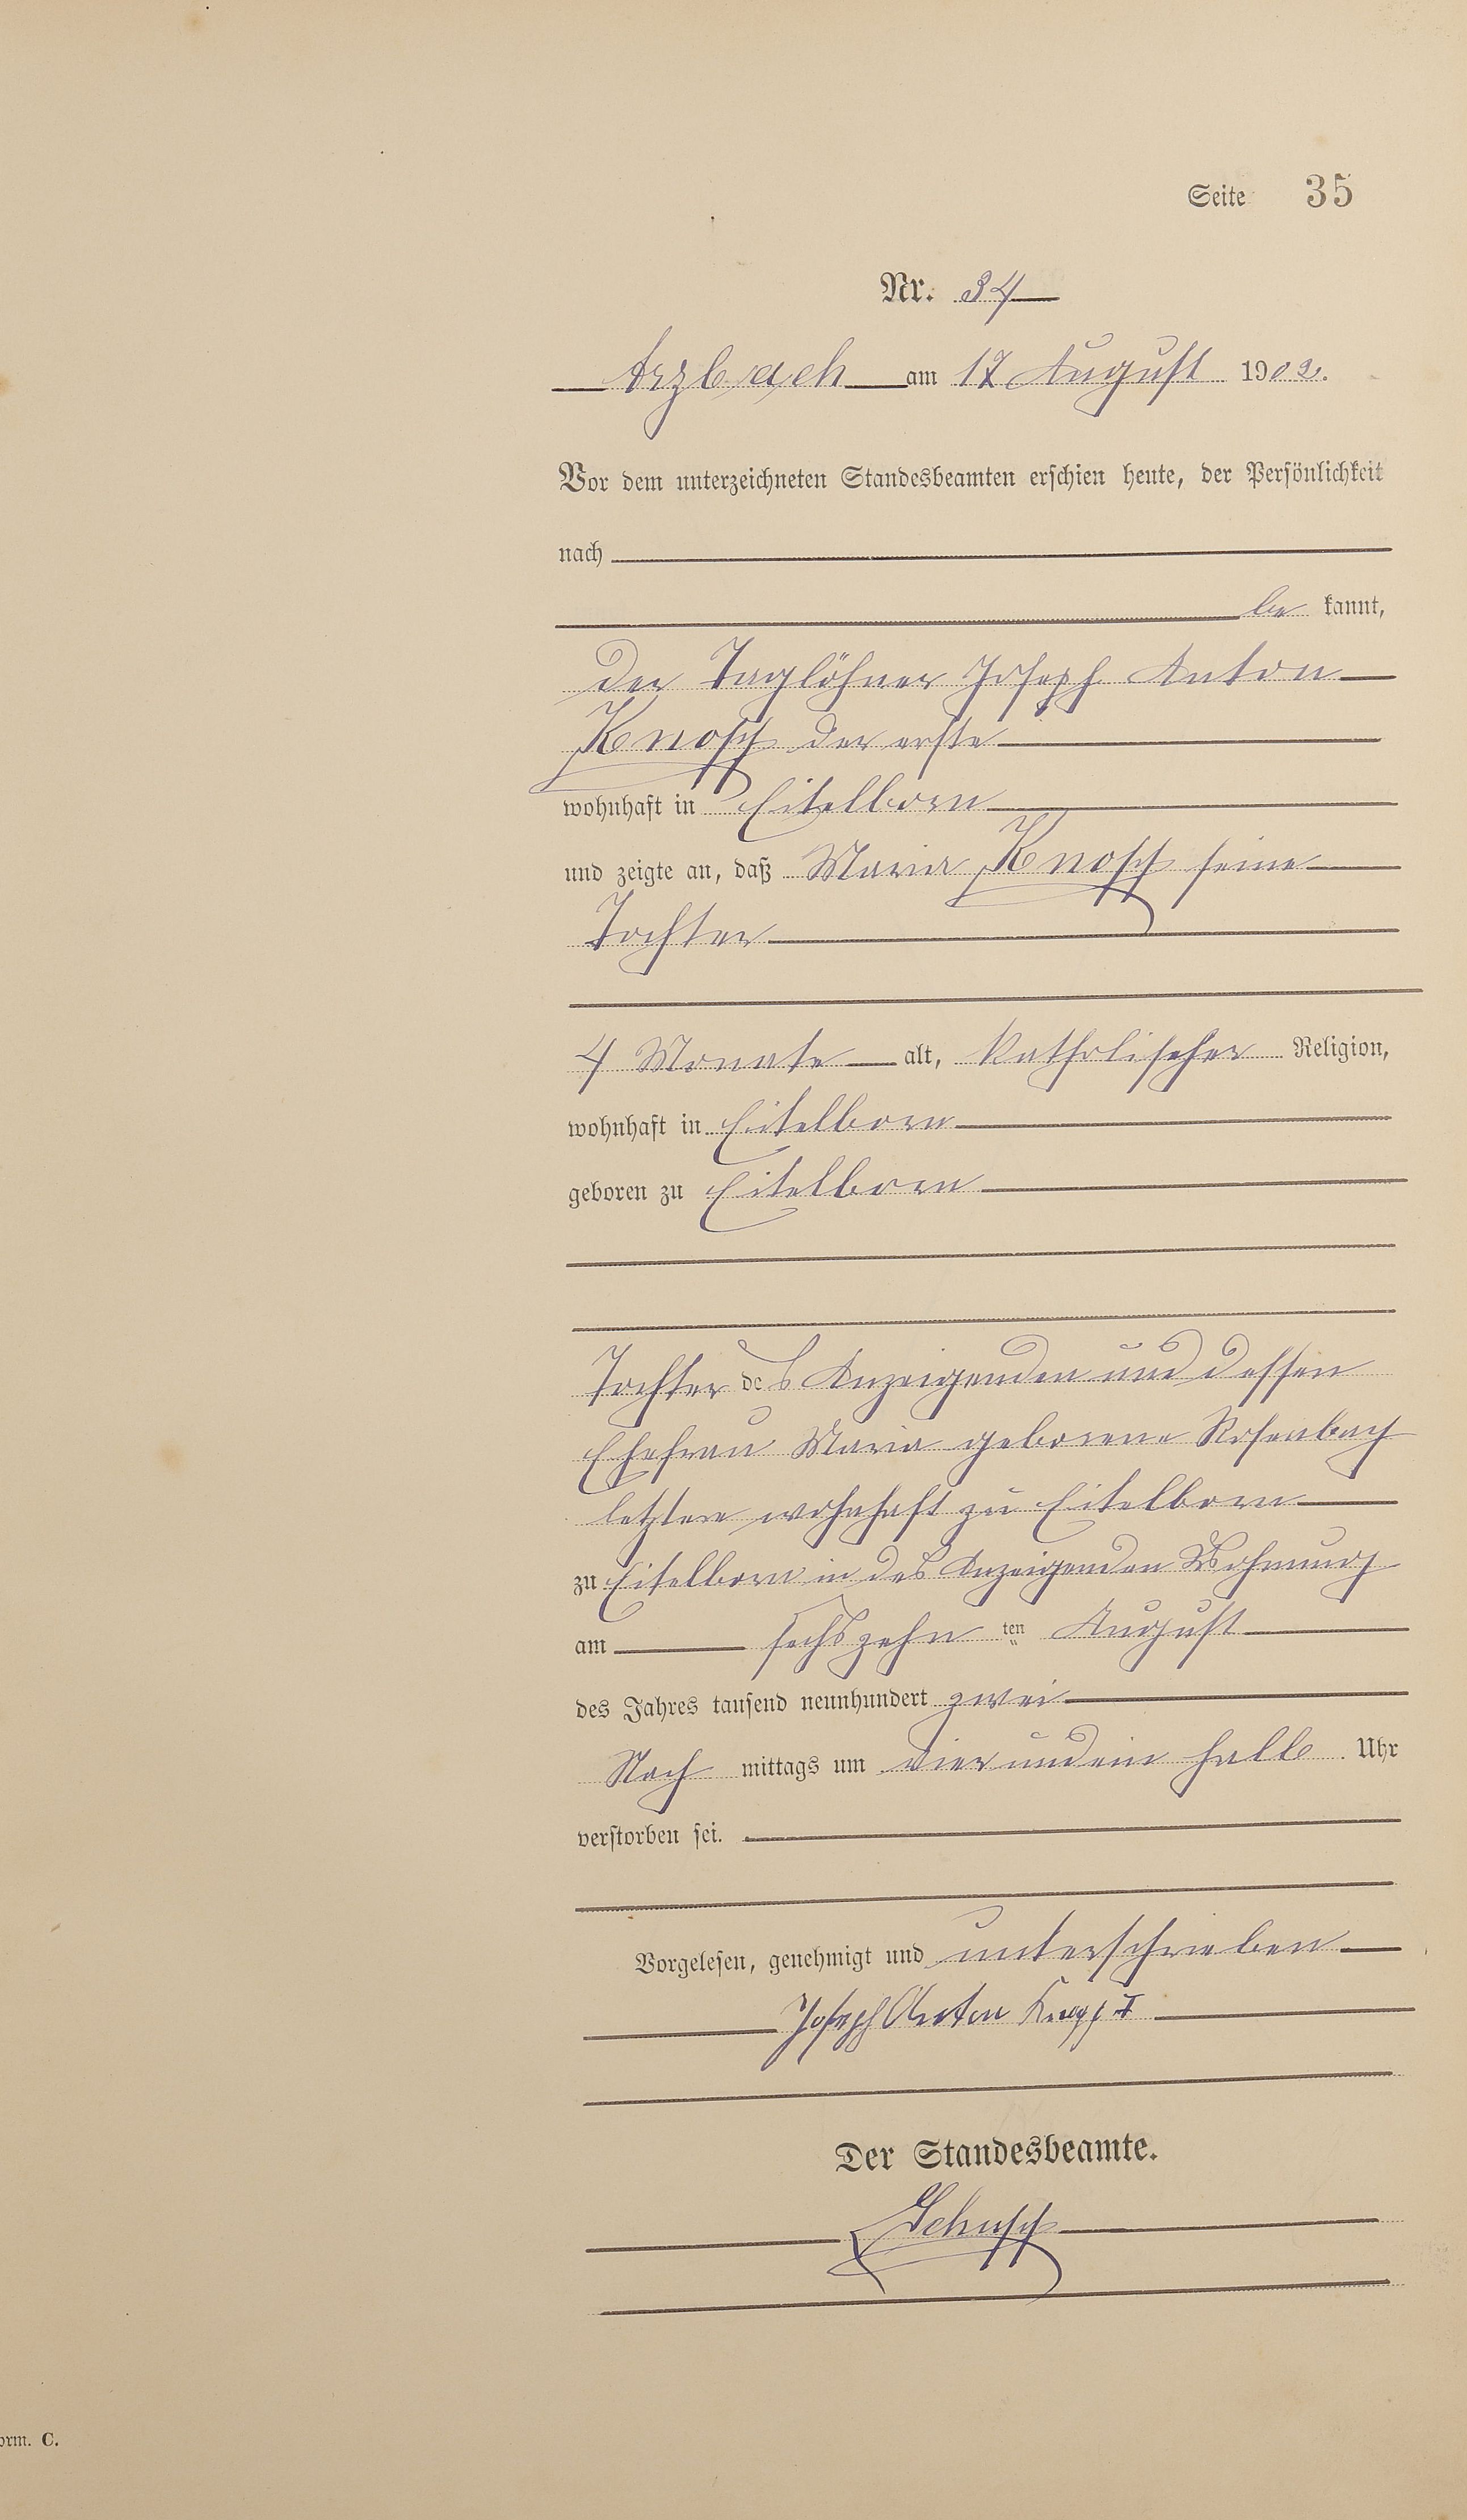 Seite 35
Nr. 34
Arzbach am 17 August 1902.
Vor dem unterzeichneten Standesbeamten erschien heute, der Persönlichkeit
nach
be kannt,
der Taglöhner Joseph Anton
Knopp der erste
wohnhaft in Eitelborn
und zeigte an, daß Maria Knopp seine
Tochter
4 Monate alt, katholischer Religion,
wohnhaft in Eitelborn
geboren zu Eitelborn
Tochter des Anzeigenden und dessen
Ehefrau Maria geborene Rosenbach
letztere wohnhaft zu Eitelborn
zu Eitelborn in des Anzeigenden Wohnung
am sechszehn ten August
des Jahres tausend neunhundert zwei
Nach mittags um vier undein halb Uhr
verstorben sei.
Vorgelesen, genehmigt und unterschrieben
Joseph Anton Knopp I
Der Standesbeamte.
Schupp
orm. C.